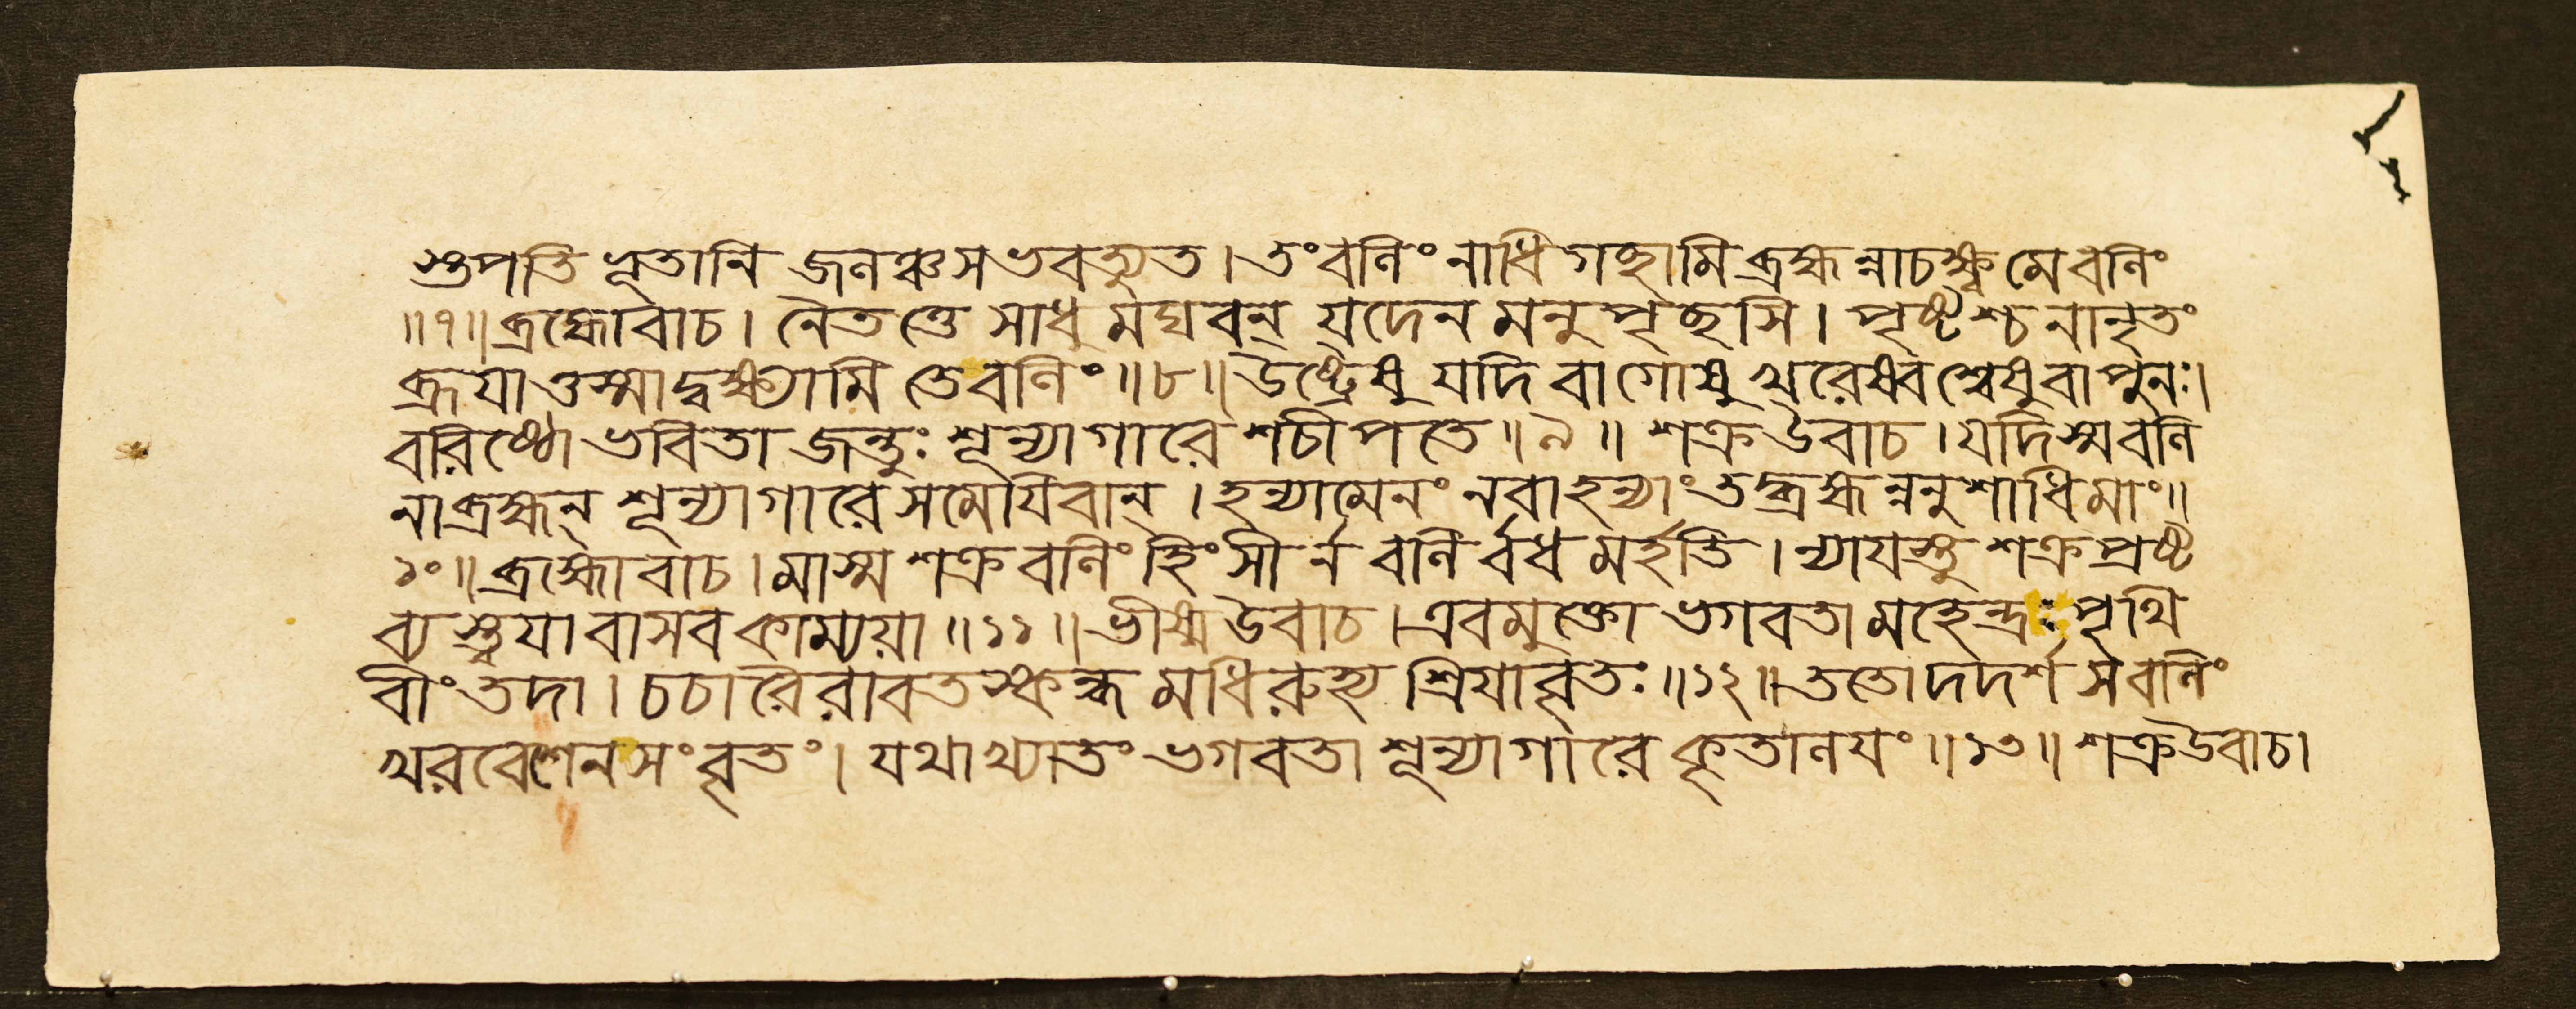 স্তপতি ভূতানি জনঞ্চ স ভবত্যুত। তং বলিং নাধি গচ্ছামি ব্রহ্মন্নাচক্ষ্ব মে বলিং
॥৭॥ ব্রহ্মোবাচ। নৈতত্তে সাধু মঘবন্ যদেন মনু পৃচ্ছসি। পৃষ্টশ্চ নানৃতং
ব্রূয়াত্তস্মাদ্বক্ষ্যামি তে বলিং॥৮॥ উষ্ট্রেষু যদি বা গোষু খরেষ্বশ্বেষু বা পুনঃ।
বরিষ্ঠো ভবিতা জন্তুঃ শূন্যাগারে শচীপতে॥৯॥ শক্র উবাচ। যদি স্ম বলি
না ব্রহ্মন্ শূন্যাগারে সমেযিবান্। হন্যামেনং ন বা হন্যাং তদ্ব্রহ্মন্ননুশাধি মাং॥
১০॥ ব্রহ্মোবাচ। মাস্ম শক্র বলিং হিংসীর্ন বলির্বধ মর্হতি। ন্যাযস্তু শক্র প্রষ্ট
ব্য স্ত্বযা বাসব কাম্যয়া॥১১॥ ভীষ্ম উবাচ। এবমুক্তো ভগবতা মহেন্দ্রঃ পৃথি
বীং তদা। চচারৈরাবতস্কন্ধ মধিরুহ্য শ্রিযাবৃতঃ॥১২॥ ততো দদর্শ স বলিং
খরবেশেন সংবৃতং। যথাখ্যাতং ভগবতা শূন্যাগারে কৃতালযং॥১৩॥ শক্র উবাচ।